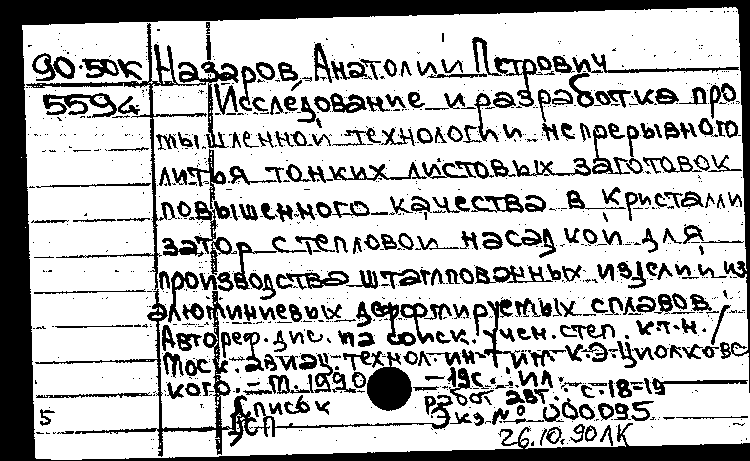 90-50К Назаров, Анатолий Петрович
5594 Исследование и разработка про
мышленной технологии непрерывного
литья тонких листовых заготовок
повышенного качества в кристалли
затор с тепловой насадкой для
производства штампованных изделий из
алюминиевых деформируемых сплавов :
Автореф. дис. на соиск. учен. степ. к.т.н. /
Моск. авиац. технол. ин-т им. К.Э. Циолковс
кого. - М. 1990 - 19с. : ил.
Список работ авт.: с. 18-19
5 ДСП Экз № 000095
26.10.90 ЛК